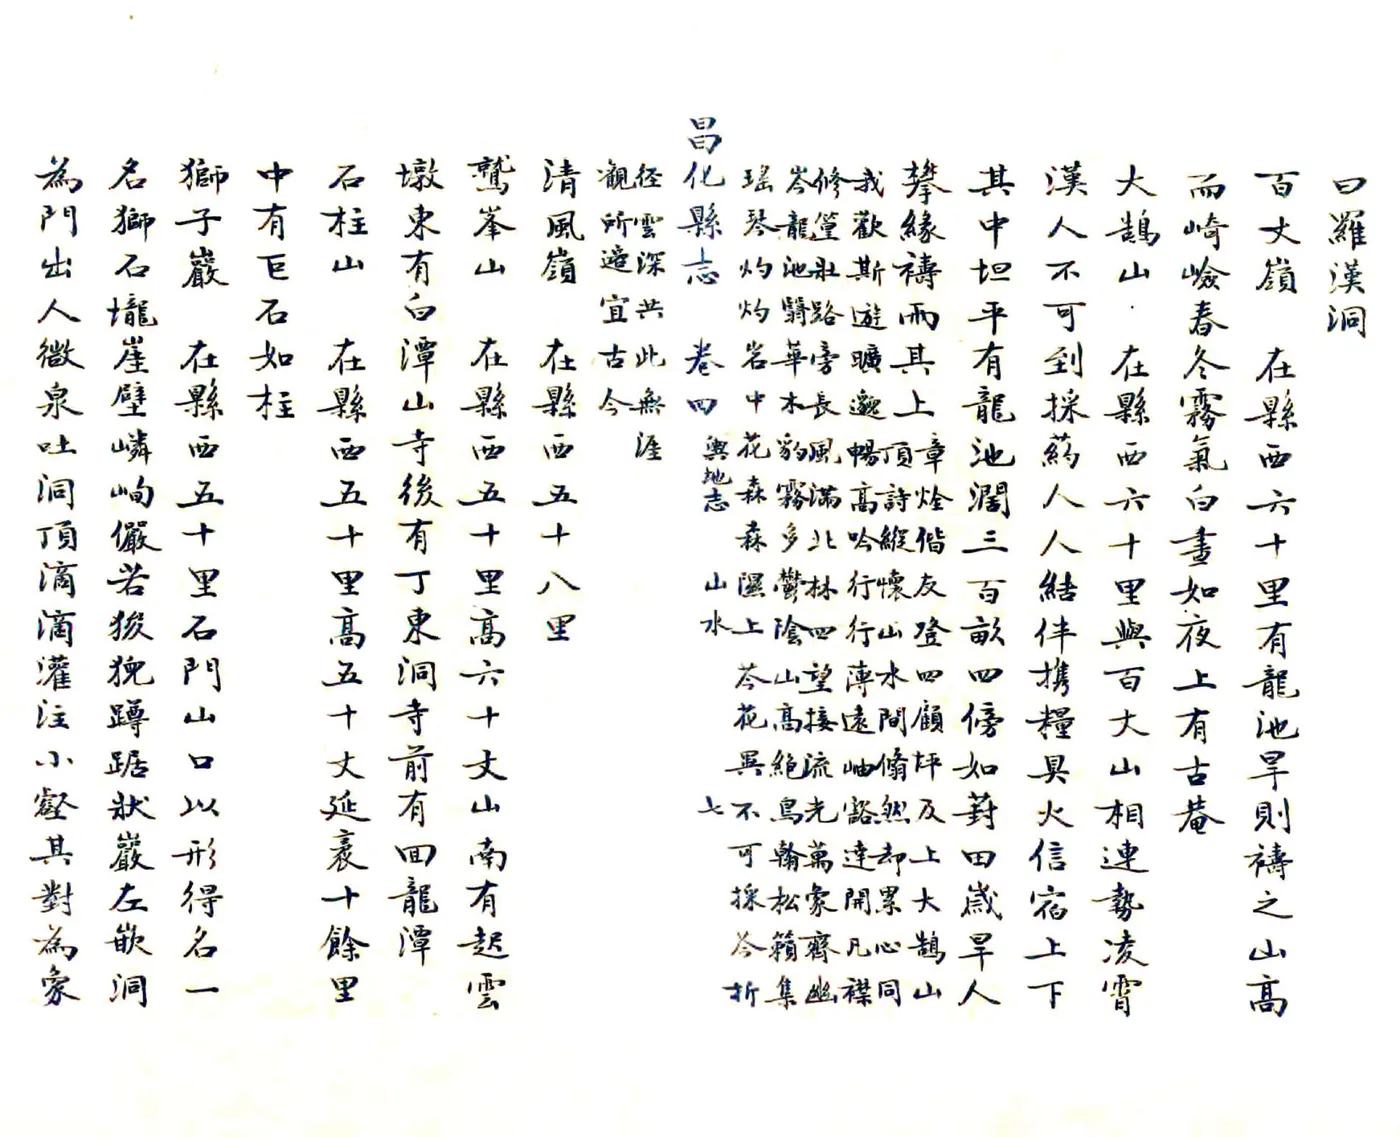 曰羅漢洞
百丈嶺　在縣西六十里有龍池旱則禱之山高
而崎嶮春冬霧氣白晝如夜上有古菴
大鵲山　在縣西六十里與百大山相連勢凌霄
漢人不可到採葯人人結伴携糧具火信宿上下
其中坦平有龍池濶三百畝四傍如葑田歲旱人
攀緣禱雨其上
章烇偕友登四顧坪反上大鵲山
頂詩縱懷山水間翛然却累心同
我歡斯遊曠邈暢高吟行行薄遠岫豁達開凡襟
修篁壯路傍長風滿北林四望接流光萬象齊幽
岑龍池翳華木豹霧多鬱陰山高絕鳥翰松籟集
瑤琴灼灼岩中花森森濕上苓花異不可採苓折
昌化縣志　卷四　輿地志　山水　七
徑雲深共此無涯
觀所適宜古今
清風嶺　在縣西五十八里
鷲峯山　在縣西五十里高六十丈山南有起雲
墩東有白潭山寺後有丁東洞寺前有回龍潭
石柱山　在縣西五十里高五十丈延袤十餘里
中有巨石如柱
獅子巖　在縣西五十里石門山口以形得名一
名獅石壠崖壁嶙峋儼若狻猊蹲踞狀巖左嵌洞
為門出人微泉吐洞頂滴滴灌注小壑其對為象